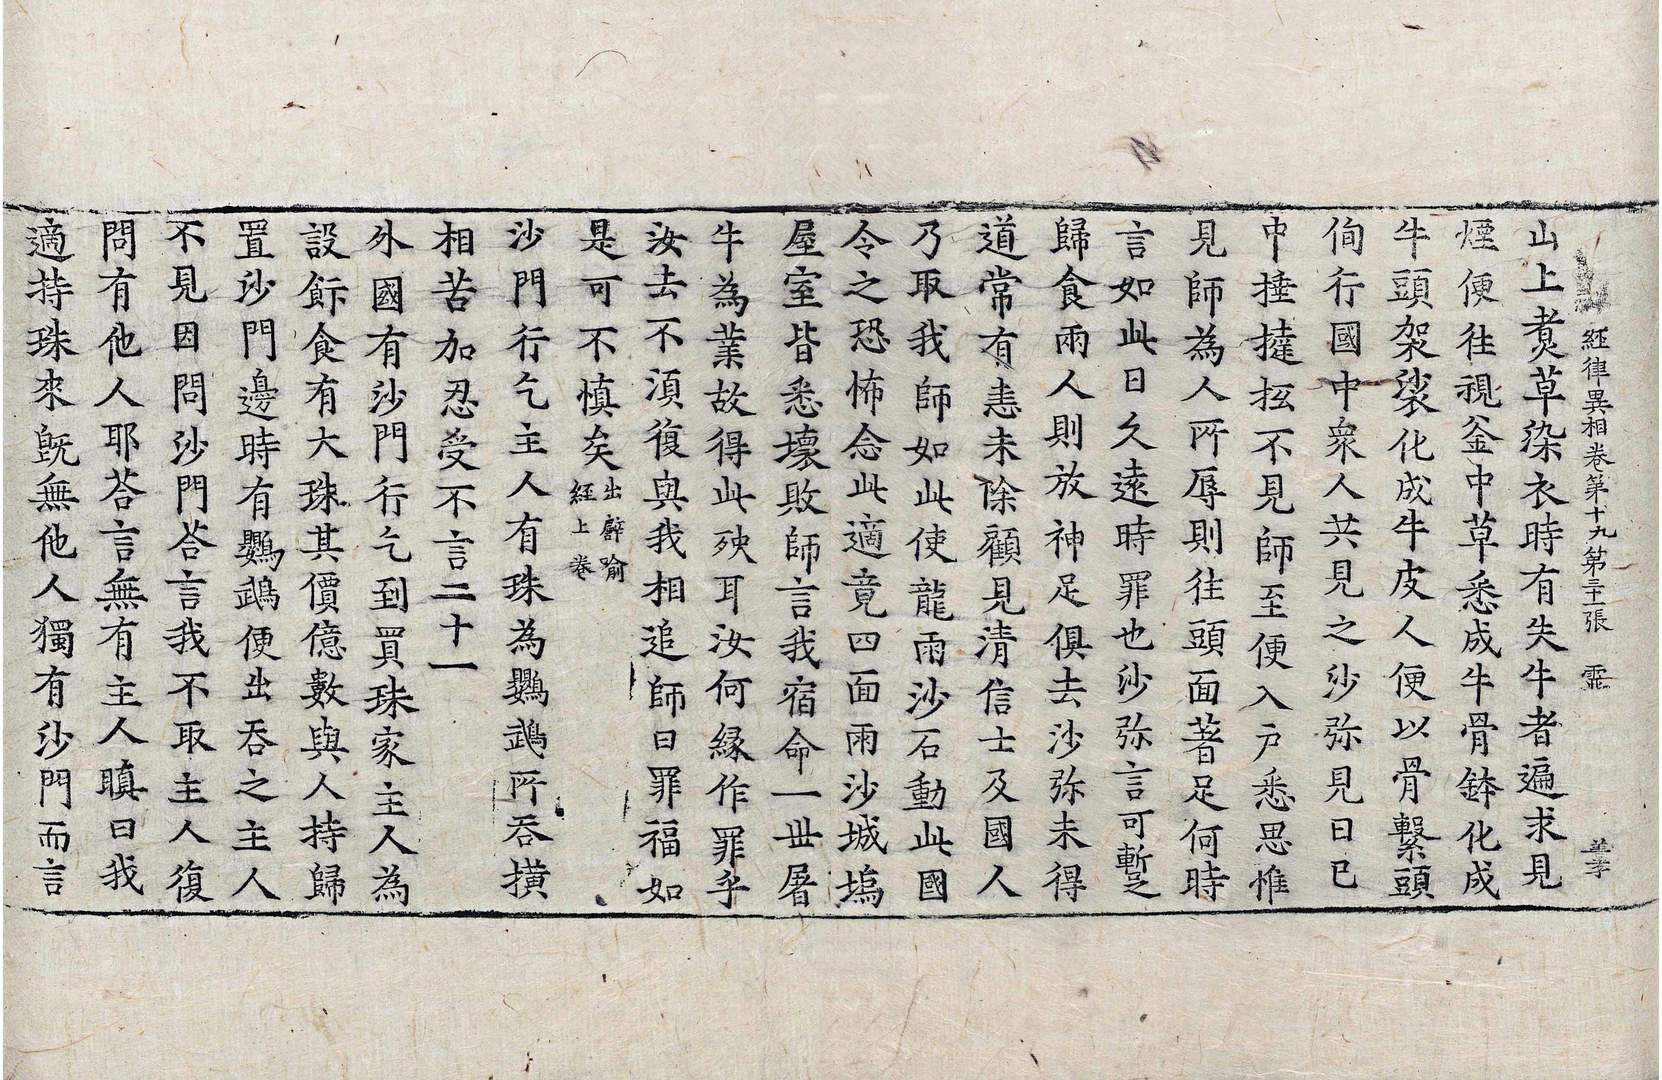 経律異相卷第十九 第三十二張 霊
山上煑草染衣時有失牛者遍求見
煙便往視釜中草悉成牛骨鉢化成
牛頭袈裟化成牛皮人便以骨繫頭
侚行國中衆人共見之沙弥見日已
中捶撻掁不見師至便入户悉思惟
見師為人所辱則往頭面著足何時
言如此日久遠時罪也沙弥言可暫
歸食兩人則放神足俱去沙弥未得
道常有恚未除顧見清信士及國人
乃取我師如此使龍雨沙石動此國
令之恐怖念此適竟四面雨沙城塢
屋室皆悉壞敗師言我宿命一丗屠
牛為業故得此殃耳汝何縁作罪乎
汝去不湏復與我相追師曰罪福如
是可不慎矣出譬喻
經上卷
沙門行乞主人有珠為鸚鵡所吞横
相苦加忍受不言二十一
外國有沙門行乞到買珠家主人為
設飰食有大珠其價億數與人持歸
置沙門邊時有鸚鵡便出吞之主人
不見因問沙門荅言我不取主人復
問有他人耶荅言無有主人瞋曰我
適持珠來既無他人獨有沙門而言